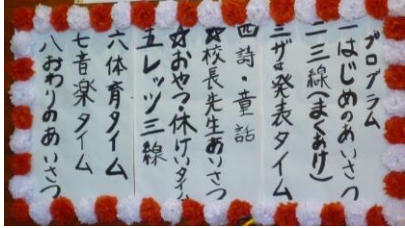 プログラム
一はじめのあいさつ
二三線(まくあけ)
三ザ・発表タイム
四詩・童話
☆校長先生あいさつ
☆おやつ・休けいタイム
五レッツ三線
六体育タイム
七音楽タイム
八おわりのあいさつ